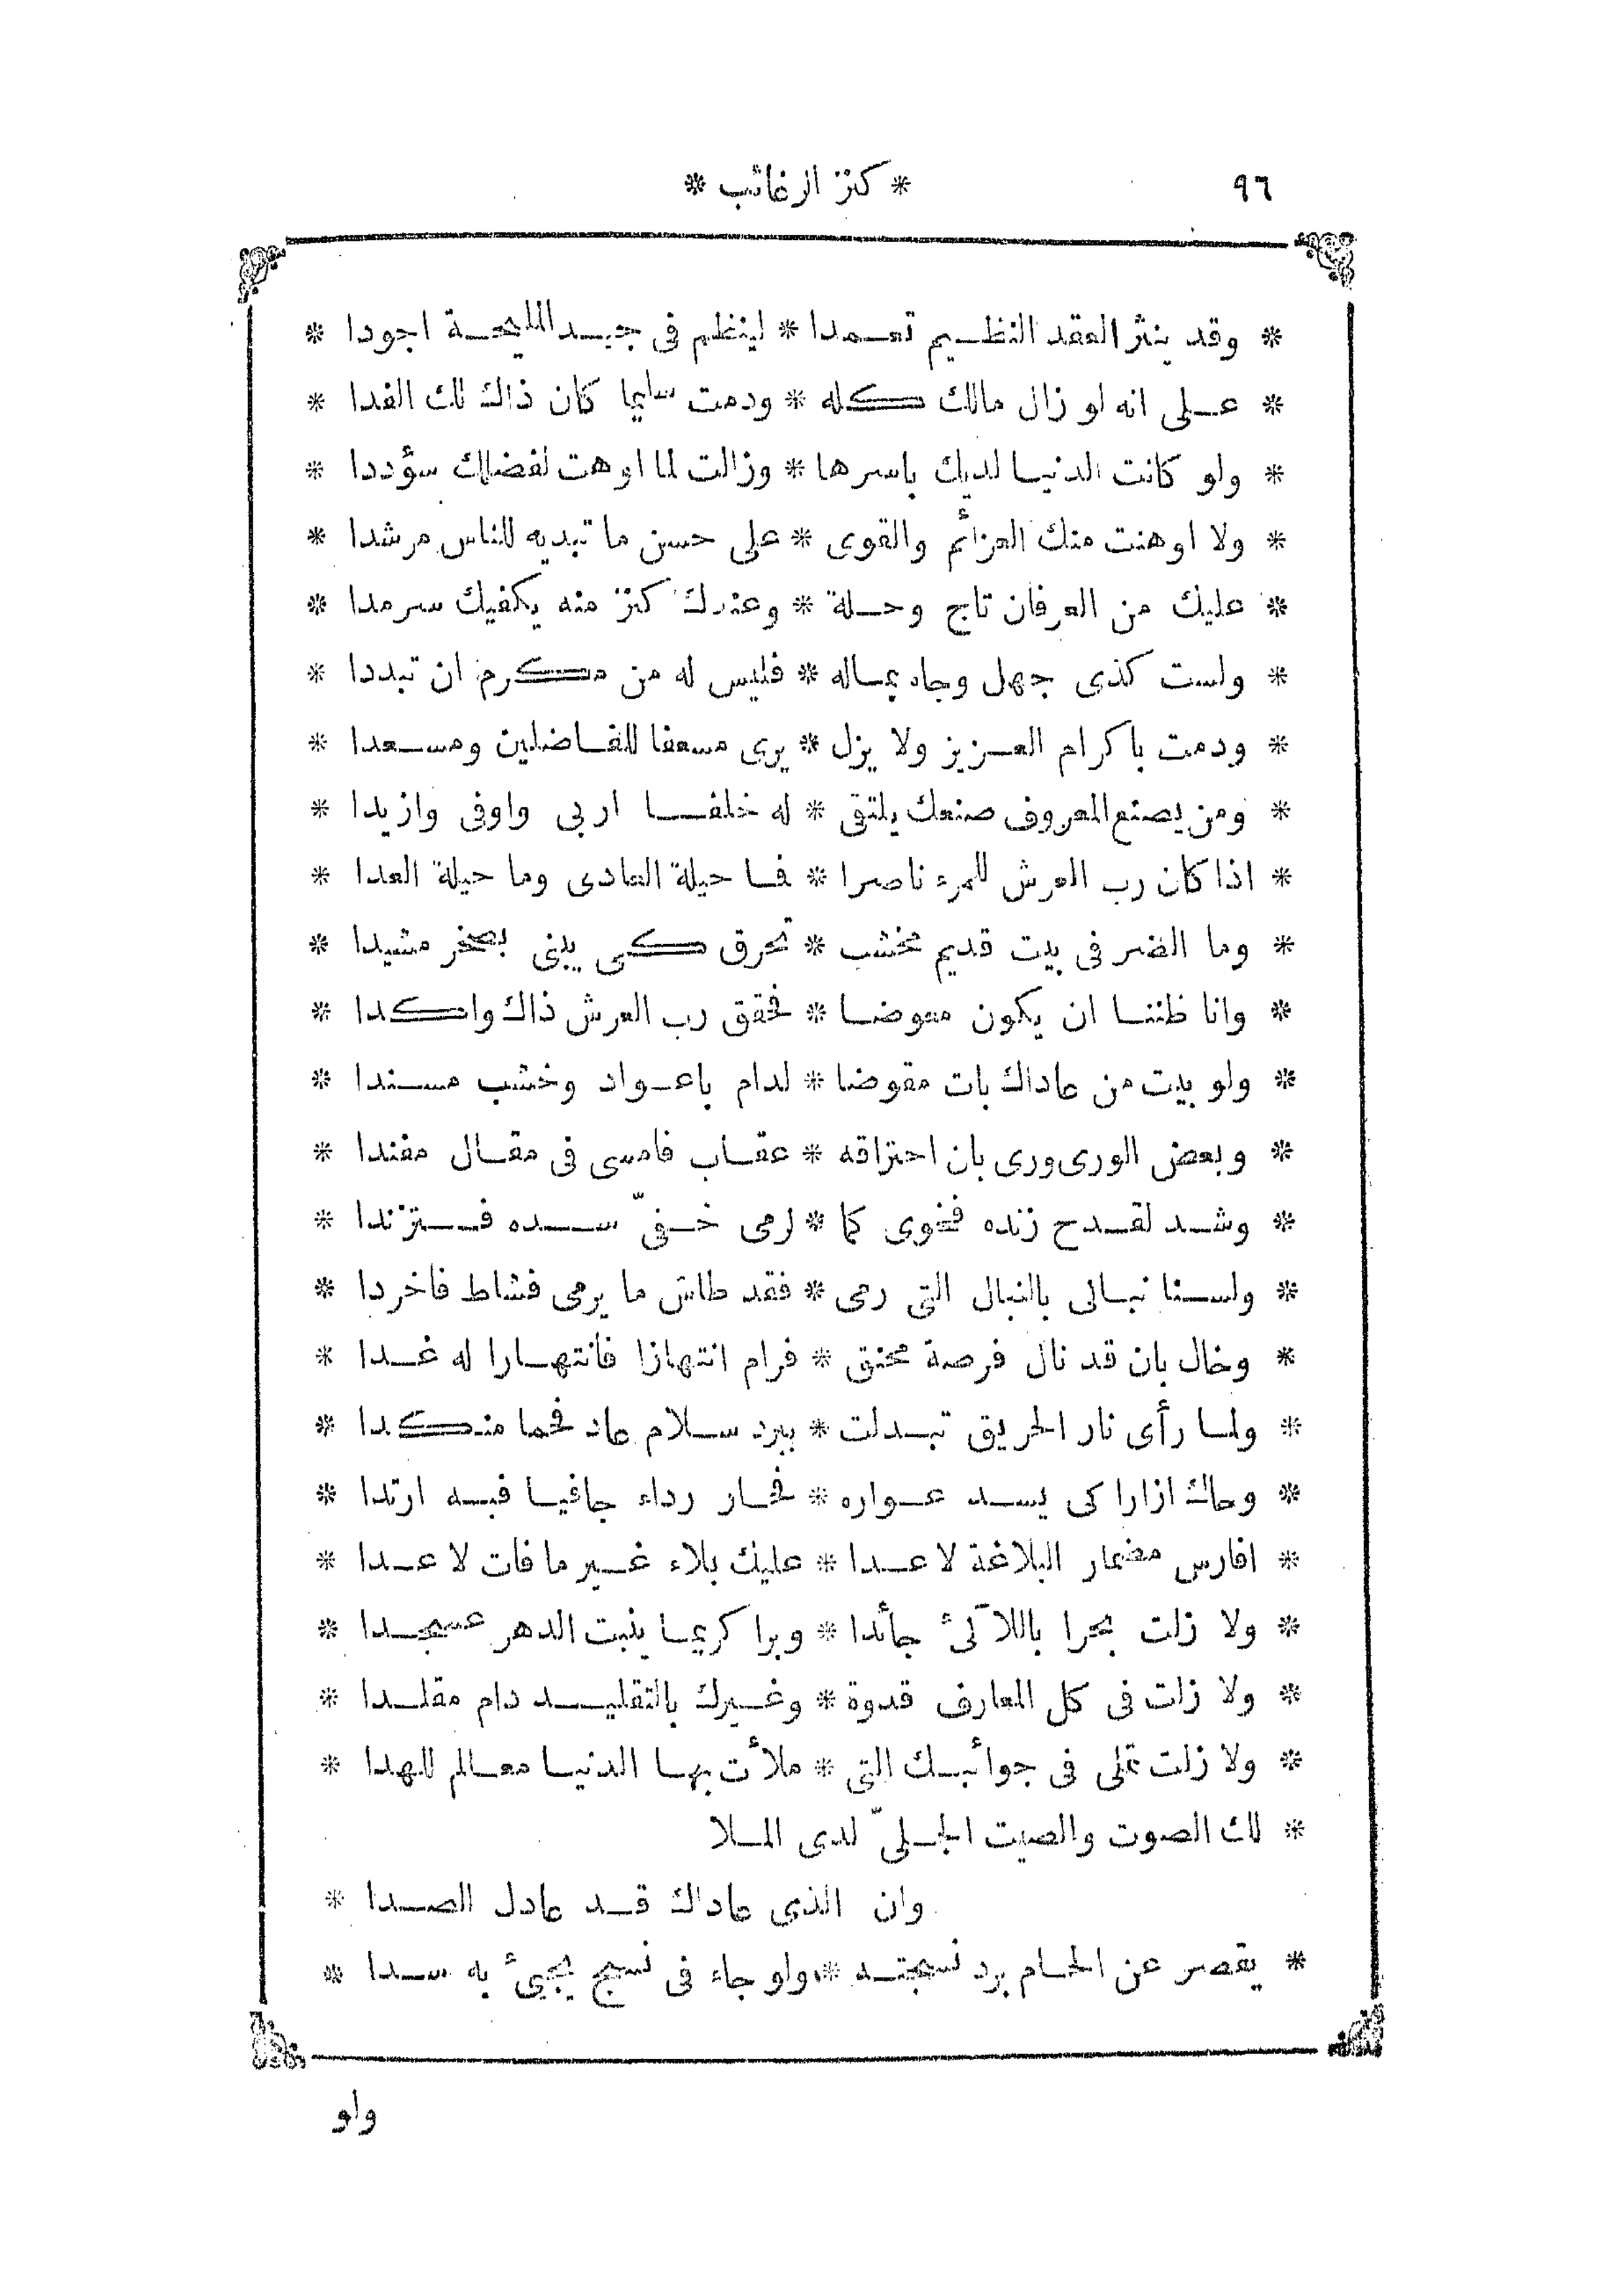 ٩٦ * كنز الرغائب *
* وقد ينثر العقد النظيم تعمدا * لينظم فى جيد المليحة اجودا *
* على انه لو زال مالك كله * ودمت سليما كان ذاك لك الفدا *
* ولو كانت الدنيا لديك باسرها * وزالت لما اوهت لفضلك سؤددا *
* ولا اوهنت منك العزائم والقوى * على حسن ما تبديه للناس مرشدا *
* عليك من العرفان تاج وحلة * وعندك كنز منه يكفيك سرمدا *
* ولست كذى جهل وجاه بماله * فليس له من مكرم ان تبددا *
* ودمت باكرام العزيز ولا يزل * يرى مسعفا للفاضلين ومسعدا *
* ومن يصنع المعروف صنعك يلتقى * له خلفا اربى واوفى وازيدا *
* اذا كان رب العرش للمرء ناصرا * فما حيلة العادى وما حيلة العدا *
* وما الضر فى بيت قديم مخشب * تحرق كى يبنى بصخر مشيدا *
* وانا ظننا ان يكون معوضا * فحقق رب العرش ذاك واكدا *
* ولو بيت من عاداك بات مقوضا * لدام باعواد وخشب مسندا *
* وبعض الورى ورى بان احتراقه * عقاب فامسى فى مقال مفندا *
* وشد لقدح زنده فخوى كما * لرمى خفىّ سده فتزندا *
* ولسنا نبالى بالنبال التى رمى * فقد طاش ما يرمى فشاط فاخردا *
* وخال بان قد نال فرصة محنق * فرام انتهازا فانتهارا له غدا *
* ولما رأى نار الحريق تبدلت * ببرد سلام عاد فحما منكدا *
* وحاك ازارا كى يسد عواره * فحار رداء جافيا فيه ارتدا *
* افارس مضمار البلاغة لا عدا * عليك بلاء غير ما فات لا عدا *
* ولا زلت بحرا باللآلئ جائدا * وبرا كريما ينبت الدهر عسجدا *
* ولا زلت فى كل المعارف قدوة * وغيرك بالتقليد دام مقلدا *
* ولا زلت تملى فى جوائبك التى * ملأت بها الدنيا معالم للهدا *
* لك الصوت والصيت الجلىّ لدى الملا
وان الذى عاداك قد عادل الصدا *
* يقصر عن الحام برد نسجته * ولو جاء فى نسج يجيئ به سدا *
ولو